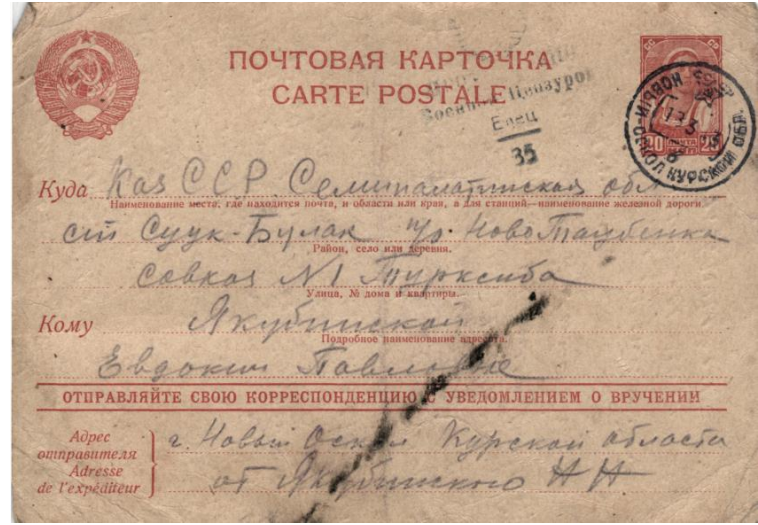 ПОЧТОВАЯ КАРТОЧКА
CARTE POSTALE
Военной Цензурой
Елец
35
СС СР
20 ПОЧТА 20
НОВЫЙ ОСКОЛ КУРСКОЙ ОБЛ.
Куда Каз ССР. Семипалатинская обл
Наименование места, где находится почта, и области или края, а для станций—наименование железной дороги.
ст Суук-Булак п/о Ново Таубинка
Район, село или деревня.
Совхоз №1 Турксиба
Улица, № дома и квартиры.
Кому Якубинской
Подробное наименование адресата.
Евдокии Павловне
ОТПРАВЛЯЙТЕ СВОЮ КОРРЕСПОНДЕНЦИЮ С УВЕДОМЛЕНИЕМ О ВРУЧЕНИИ
Адрес отправителя г. Новый Оскол Курской области
Adresse de l'expéditeur от Якубинского Н Н